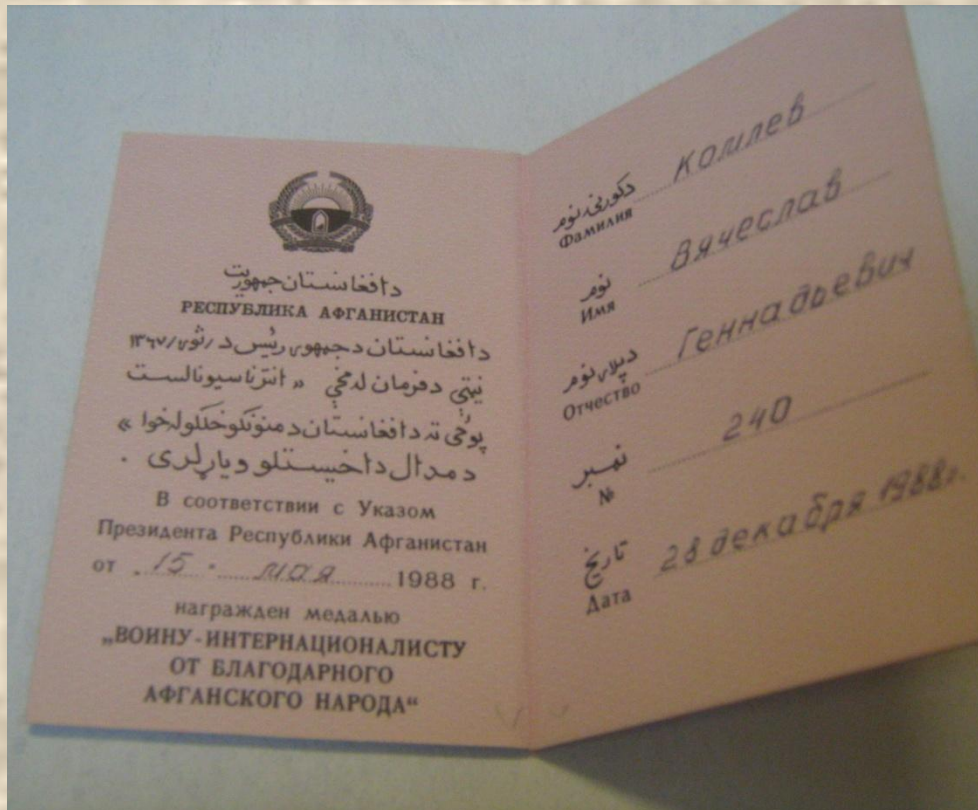 دافغانستان جمهوریت
РЕСПУБЛИКА АФГАНИСТАН
دافغانستان دجمهور رئیس د ثور ۱۳۶۷
نیټې دفرمان له مخې « انترناسیونالست
پوځی ته دافغانستان دمننکوخلکولخوا »
دمدال داخیستلو ویاړلری .
В соответствии с Указом
Президента Республики Афганистан
от 15 мая 1988 г.
награжден медалью
„ВОИНУ-ИНТЕРНАЦИОНАЛИСТУ
ОТ БЛАГОДАРНОГО
АФГАНСКОГО НАРОДА“
دکورنی نوم Комлев
Фамилия
نوم Вячеслав
Имя
دپلار نوم Геннадьевич
Отчество
نمبر 240
№
تاریخ 28 декабря 1988г.
Дата